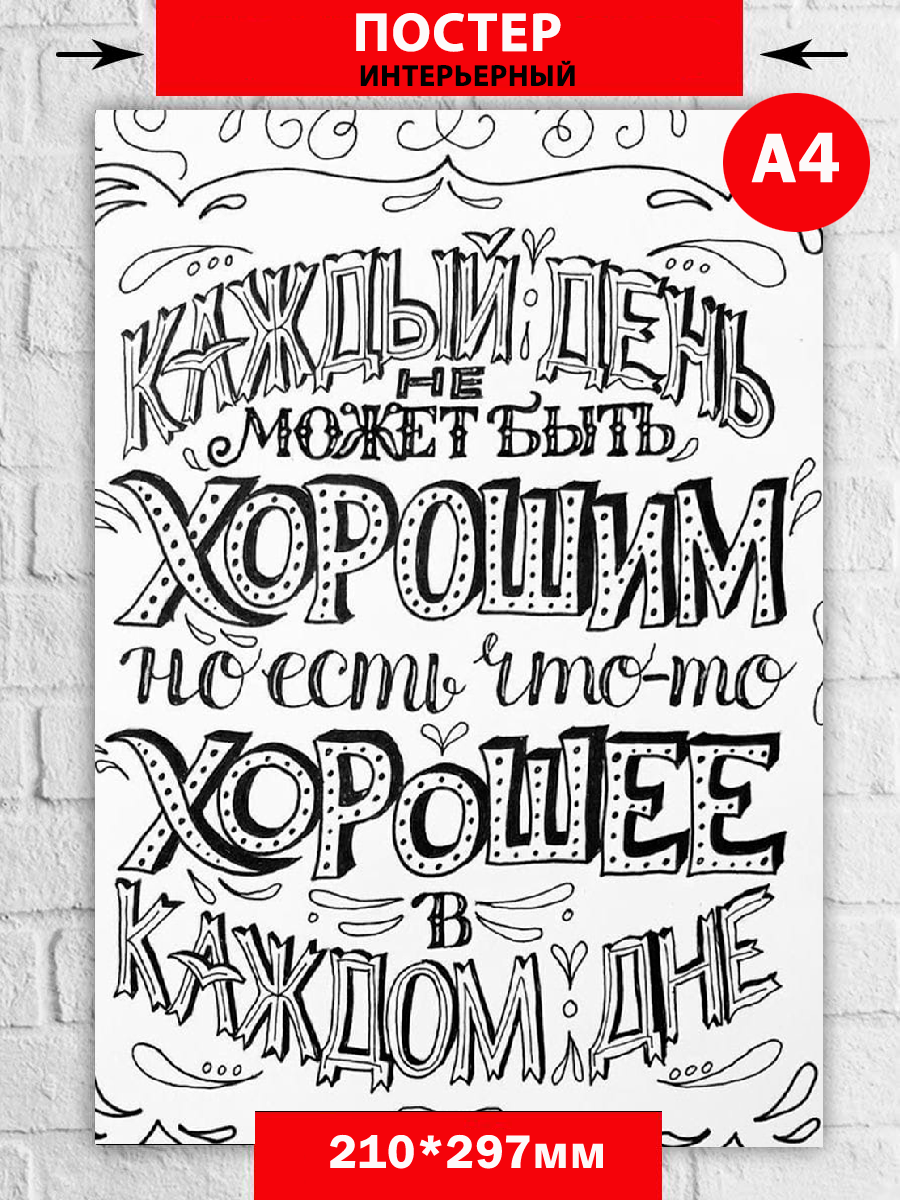 ПОСТЕР
ИНТЕРЬЕРНЫЙ
А4
КАЖДЫЙ ДЕНЬ
НЕ
МОЖЕТ БЫТЬ
ХОРОШИМ
но есть что-то
ХОРОШЕЕ
В
КАЖДОМ ДНЕ
210*297мм